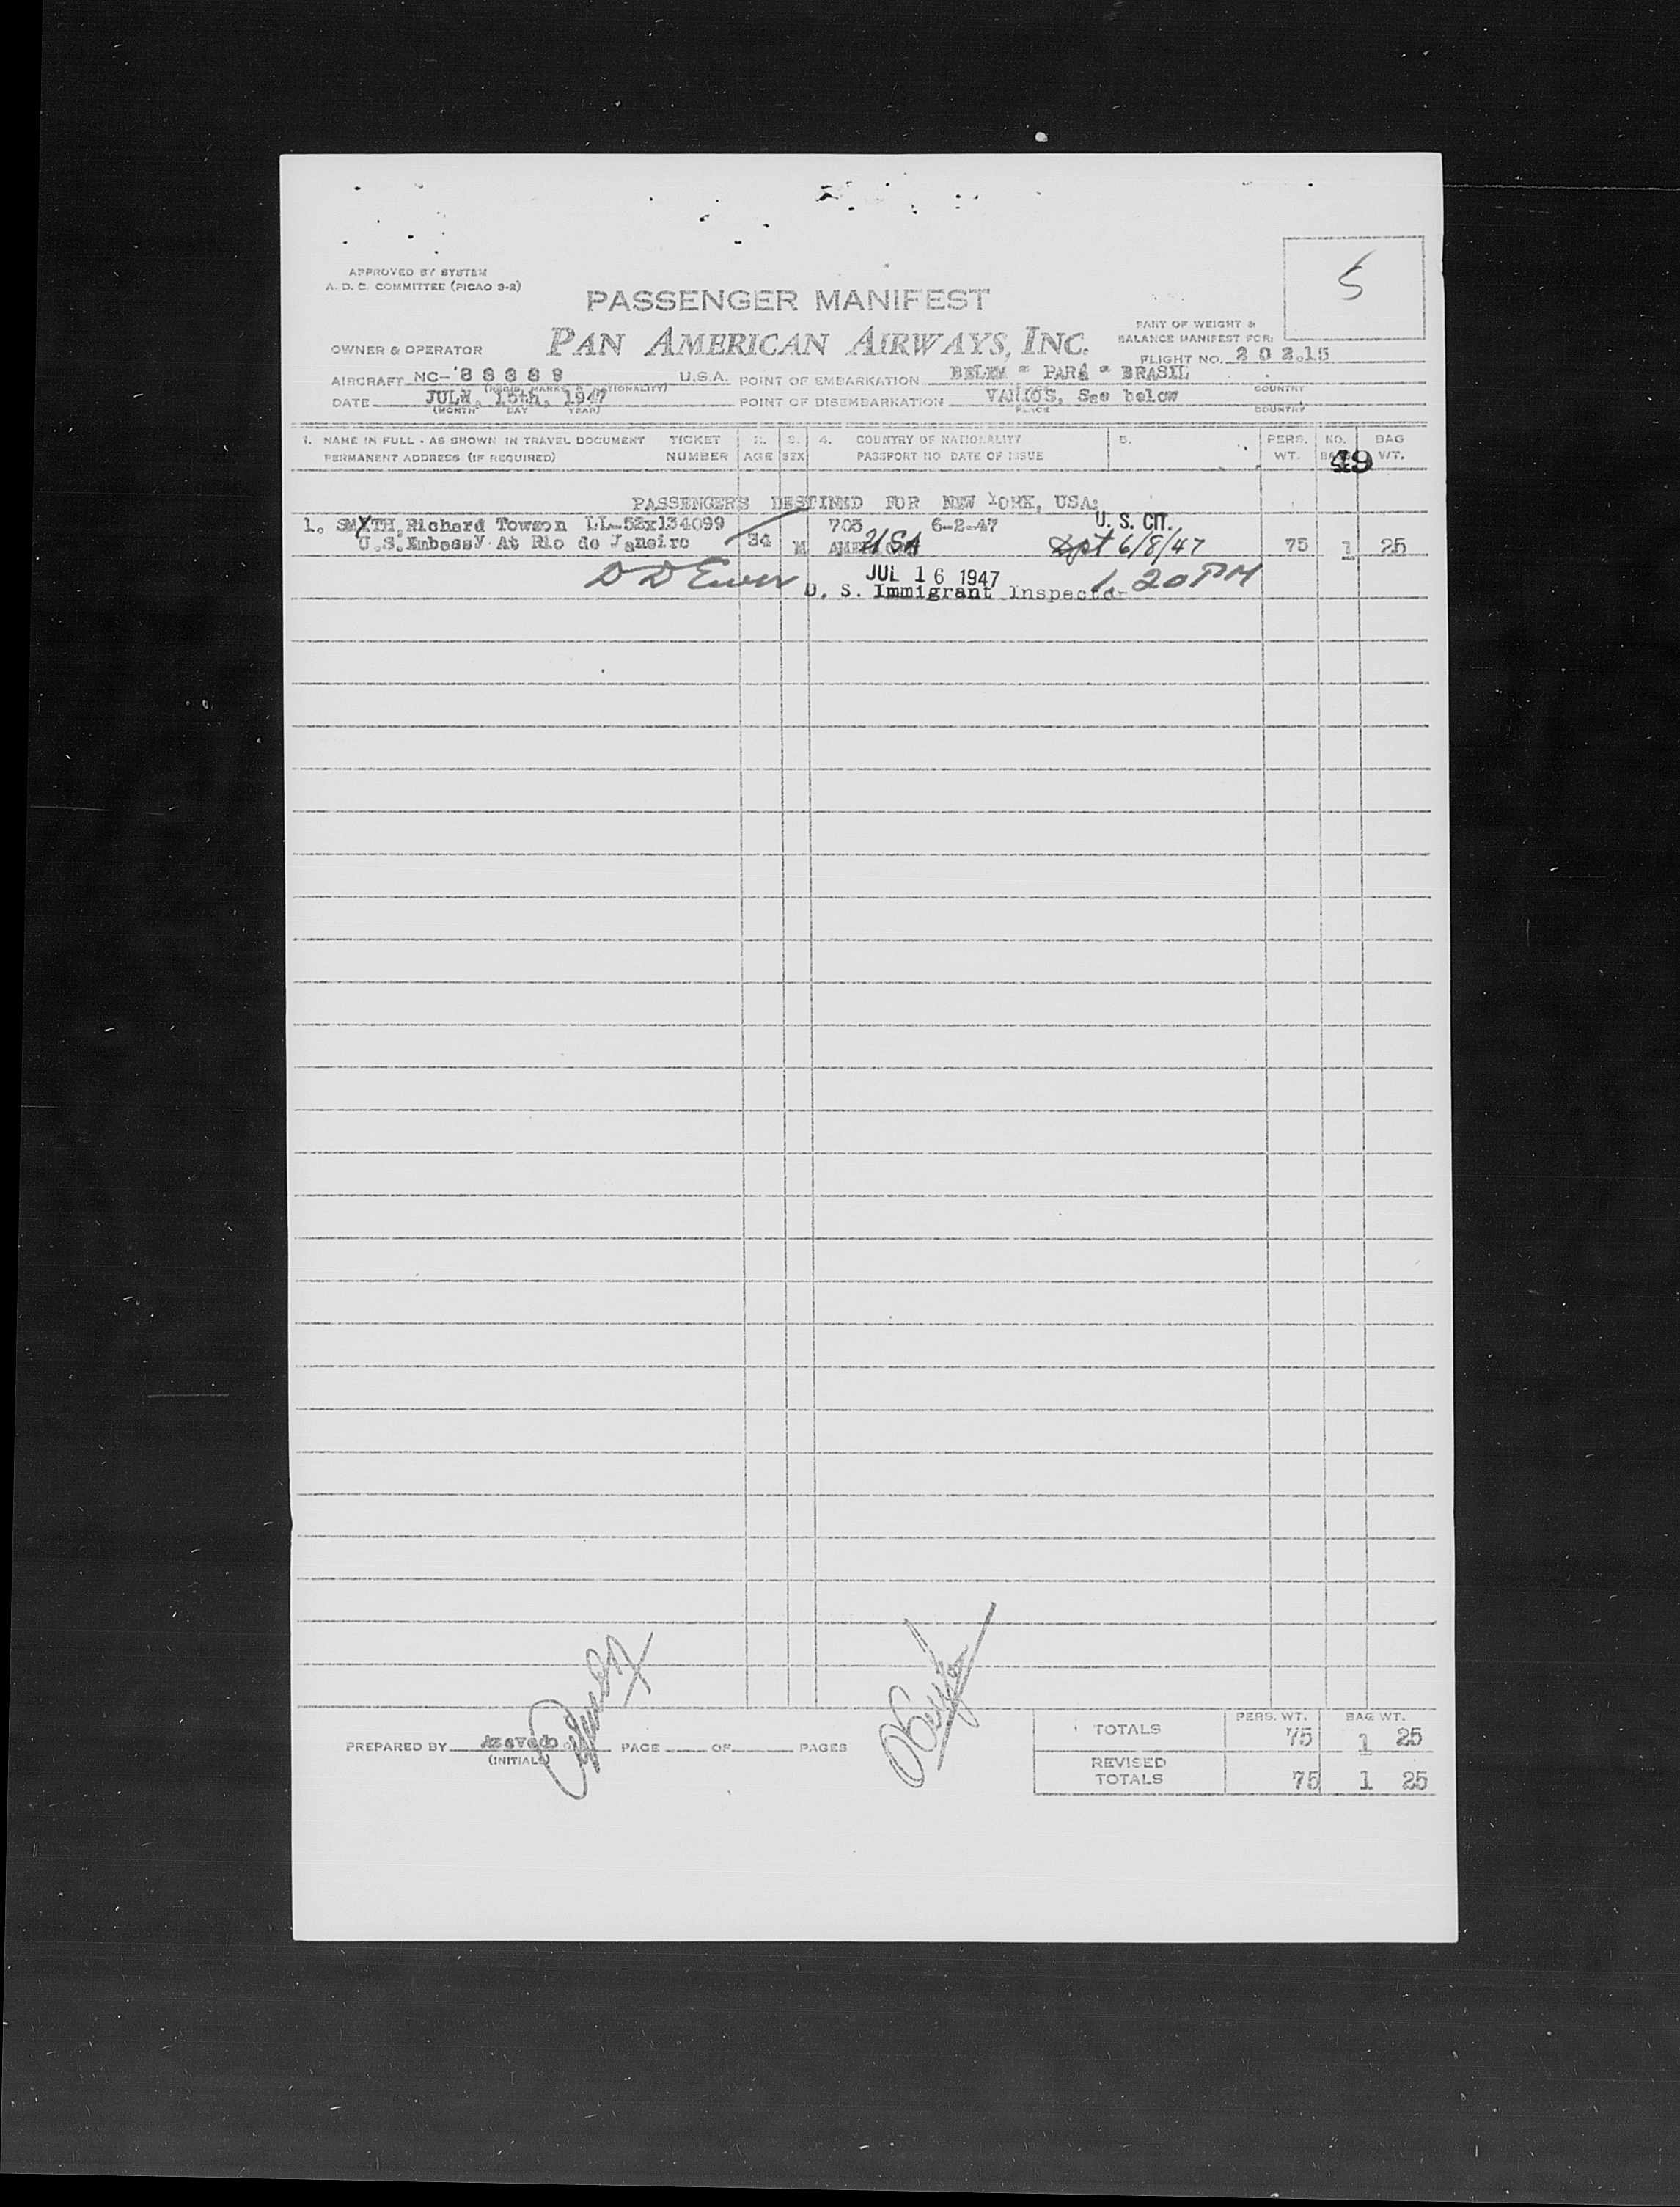 5
APPROVED BY SYSTEM
A. D. C. COMMITTEE (PICAO 3-2)
PASSENGER MANIFEST
PART OF WEIGHT &
BALANCE MANIFEST FOR:
OWNER & OPERATOR PAN AMERICAN AIRWAYS, INC.
FLIGHT NO. 2 0 2.15
AIRCRAFT NC-'8 8 8 8 9 U.S.A. POINT OF EMBARKATION BELEM - PARÁ - BRASIL
(REGIS. MARKS & NATIONALITY) COUNTRY
DATE JULY, 15th, 1947 POINT OF DISEMBARKATION VARIOS, See below
(MONTH DAY YEAR) PLACE COUNTRY
1. NAME IN FULL - AS SHOWN IN TRAVEL DOCUMENT TICKET 2. 3. 4. COUNTRY OF NATIONALITY 5. PERS. NO. BAG
PERMANENT ADDRESS (IF REQUIRED) NUMBER AGE SEX PASSPORT NO DATE OF ISSUE WT. WT.
49
PASSENGERS DESTINED FOR NEW YORK, USA:
1. SMYTH, Richard Towson LL-52x134099 703 6-2-47 U. S. CIT.
U.S.Embassy At Rio de Janeiro 34 M USA Dpt 6/8/47 75 1 25
JUL 16 1947
U. S. Immigrant Inspector 1.20 PM
TOTALS PERS. WT. 75 1 BAG WT. 25
PREPARED BY Azevedo PAGE OF PAGES
(INITIALS)
REVISED
TOTALS 75 1 25